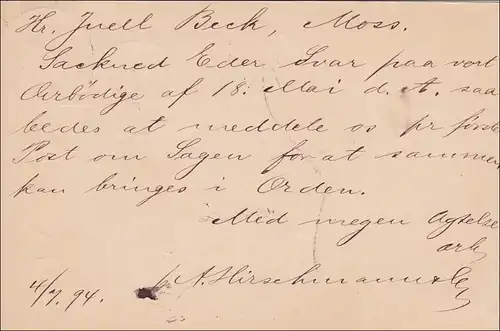 Hr. Juell Beck, Moss.
Sacnued Eder Svar paa vort
Ærbödige af 18. Mai d. A. saa
bedes at meddele os pr förste
Post om Sagen for at samme
kan bringes i Orden.
Med megen Agtelse
ærb
4/7. 94. pr A. Hirschmann & Co